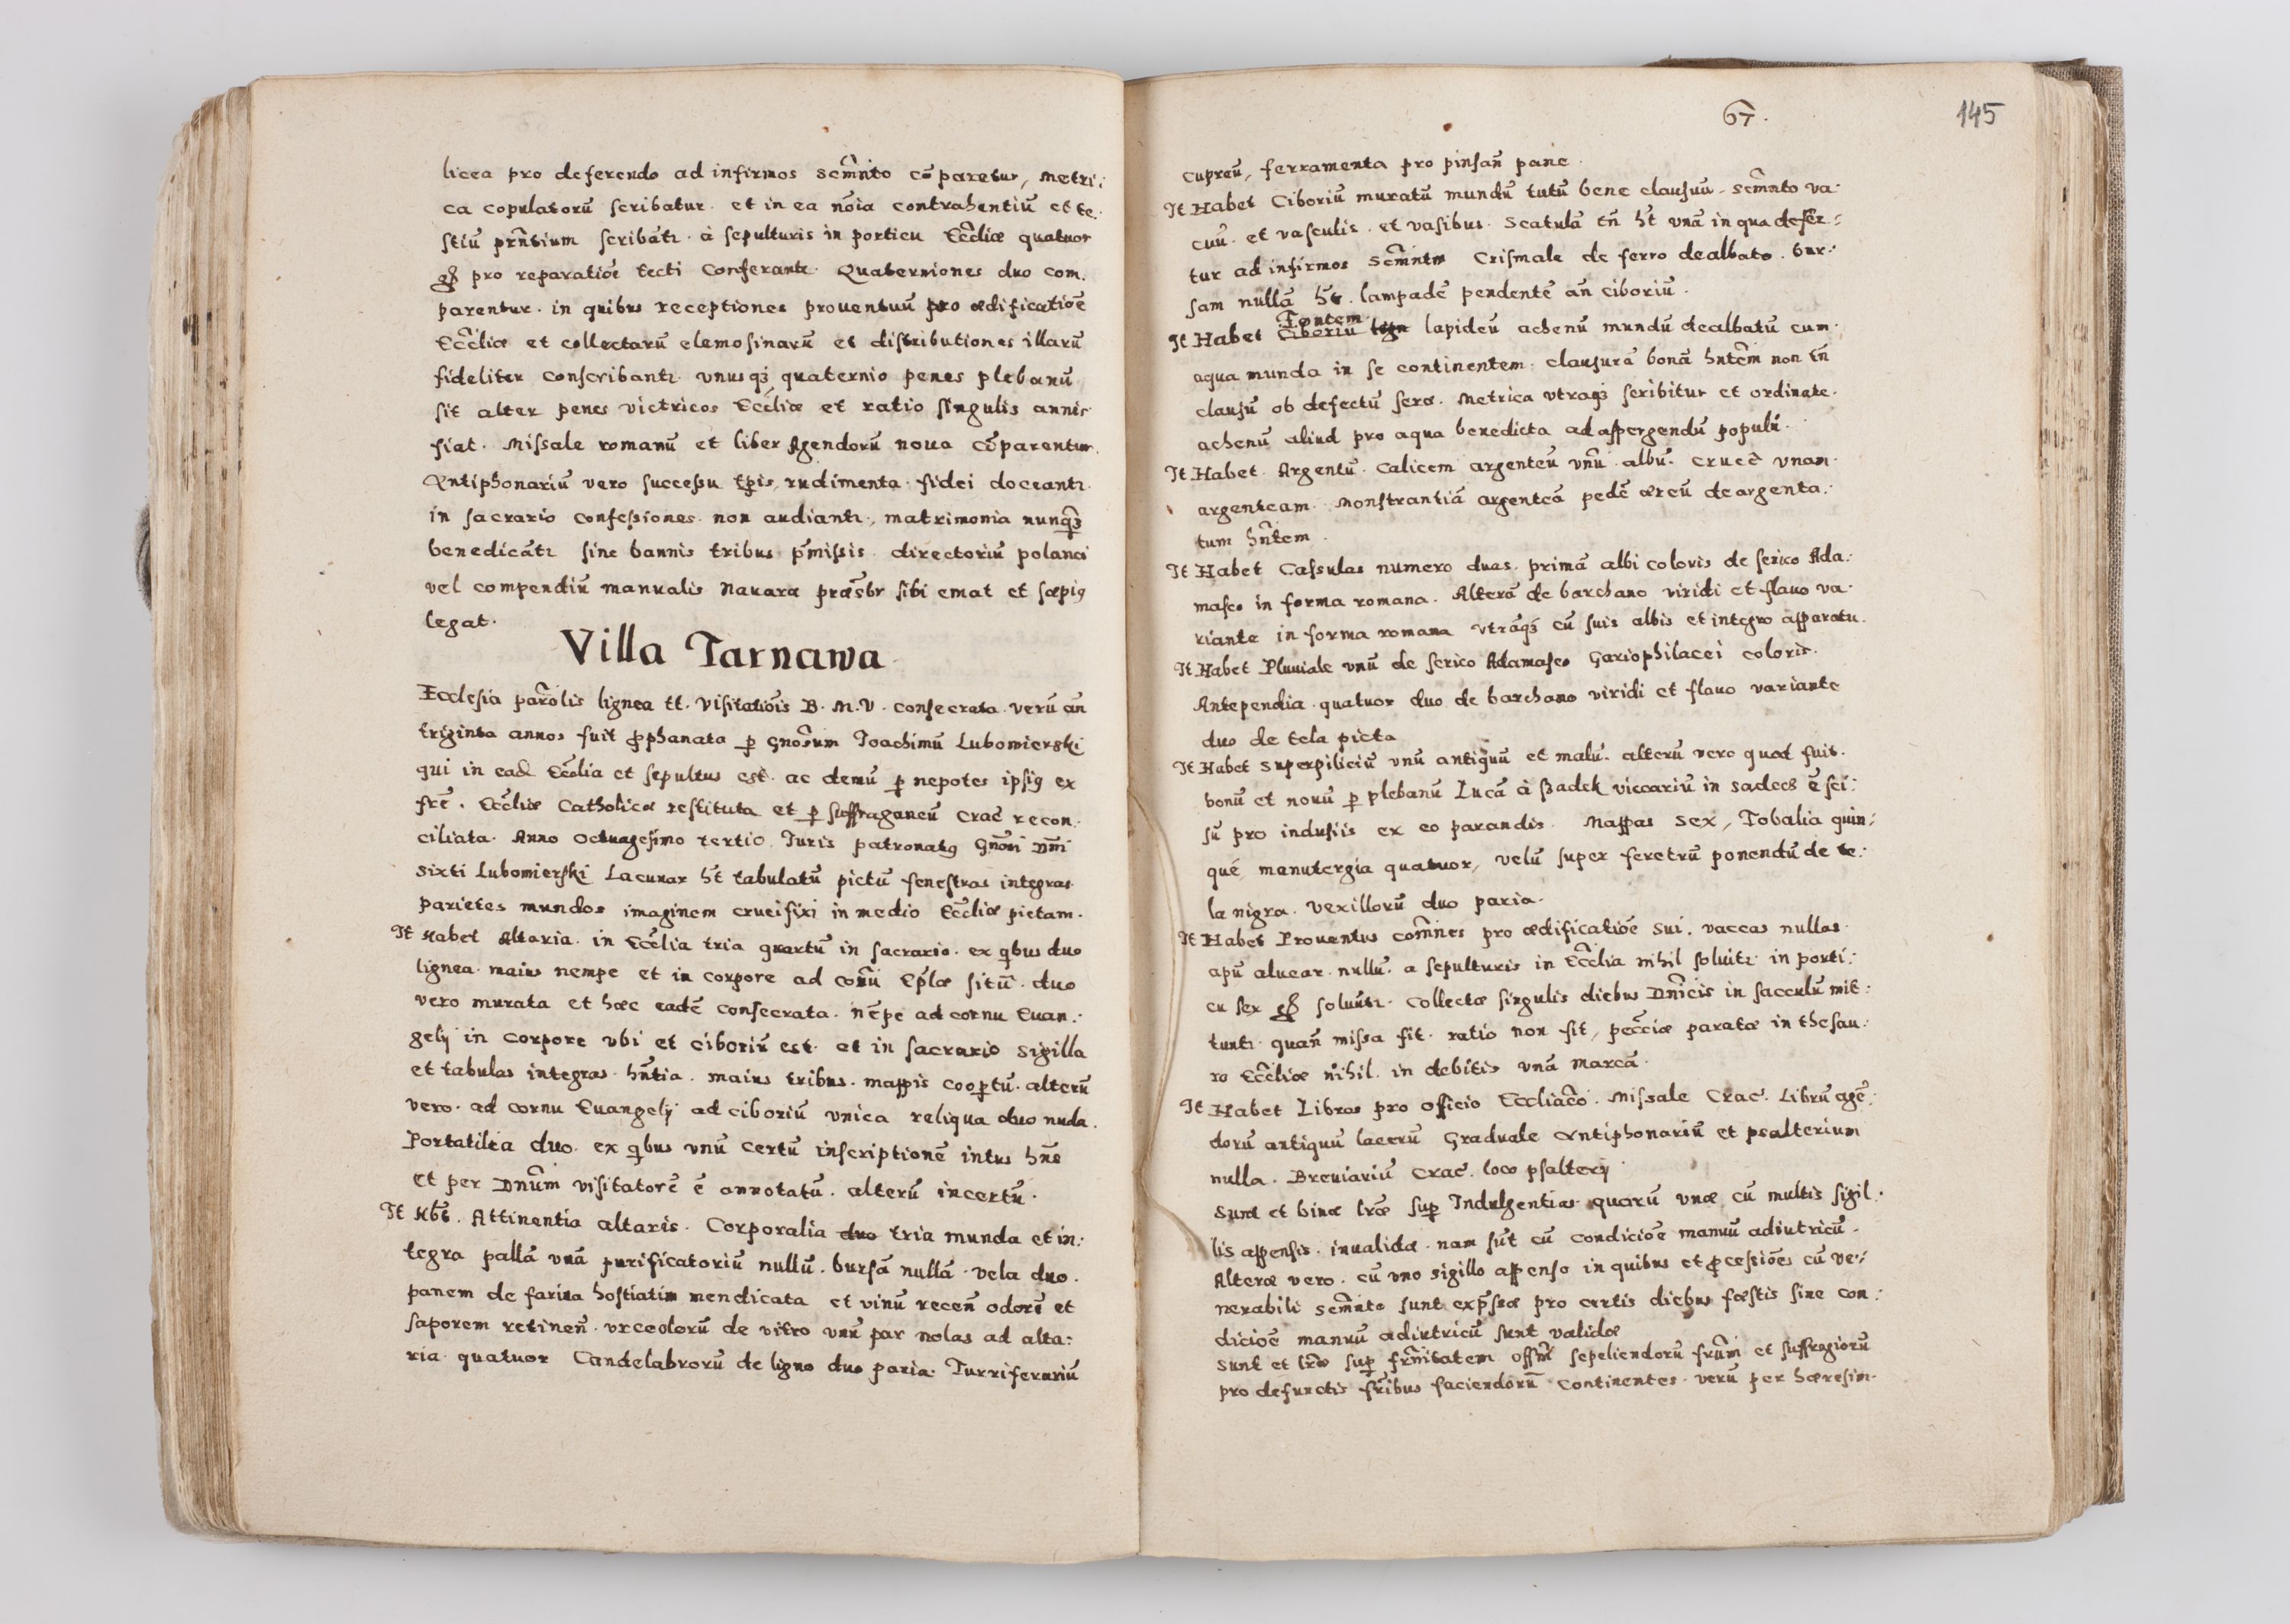 licea pro deferendo ad infirmos Scm̃nto cõparetur, Metri:
ca copulatorũ scribatur. et in ea nõia contrahentiũ et te:
stiũ prñtium scribãtr. à sepulturis in porticu Ecc̃liæ quatuor
pro reparatiõe tecti Conferantr. Quaterniones duo com.
parentur. in quibus receptiones prouentuũ pro ædificatiõe
Ecc̃liæ et collectarũ elemosinarũ et distributiones illarũ
fideliter conscribantr. vnusqз quaternio penes plebanũ
sit alter penes victricos Ecc̃liæ et ratio singulis annis
fiat. Missale romanũ et liber Agendorũ noua cõparentur.
Antiphonariũ vero successu tp̃is, rudimenta fidei doceantr.
in sacrario confessiones non audiantr., matrimonia nunq̃з
benedicãtr sine bannis tribus p̃missis. directoriũ polanci
vel compendiũ manualis Nauaræ præsbr sibi emat et sæpiꝰ
legat.
Villa Tarnawa
Ecclesia parõlis lignea tt. Visitatiõis B. M. V. consecrata. verũ añ
triginta annos fuit ꝓphanata ꝑ Gnõsum Joachimũ Lubomierski
qui in eadẽ Ecc̃lia et sepultus est. ac demũ ꝑ nepotes ipsiꝰ ex
fr̃e. Ecc̃liæ Catholicæ restituta et ꝑ suffraganeũ Crac̃ recon.
ciliata. Anno octuagesimo tertio. Juris patronatꝰ Gnõsi Dñi
Sixti Lubomierski Lacunar h̃t tabulatũ pictũ fenestras integras.
parietes mundos imaginem crucifixi in medio Ecc̃liæ pictam.
It Habet Altaria. in Ecc̃lia tria quartũ in sacrario. ex qbus duo
lignea. maius nempe et in corpore ad cornũ Ep̃læ sitũ. duo
vero murata et hæc eadẽ consecrata. nẽpe ad cornu Euan:
gelij in corpore vbi et ciboriũ est. et in sacrario sigilla
et tabulas integras hñtia. maius tribus. mappis coopertũ. alterũ
vero. ad cornu Euangelij ad ciboriũ vnica reliqua duo nuda.
Portatilia duo. ex qbus vnũ certũ inscriptionẽ intus hñs
et per Dnũm visitatorẽ ẽ annotatũ. alterũ incertũ.
It Hb̃t. Attinentia altaris. Corporalia duo tria munda et in:
tegra pallã vnã purificatoriũ nullũ. bursã nullã. vela duo.
panem de farina hostiatim mendicata et vinũ receñ odorẽ et
saporem retineñ. vrceolorũ de vitro vnũ par nolas ad alta:
ria quatuor Candelabrorũ de ligno duo paria. Turriferariũ
67.
145
cupreũ, ferramenta pro pinsañ pane.
It Habet Ciboriũ muratũ mundũ tutũ bene clausũ. Scm̃nto va:
cuũ. et vasculis. et vasibus. Scatulã tñ h̃t vnã in qua defer:
tur ad infirmos Scm̃ntũ Crismale de ferro dealbato. bur:
sam nullã h̃t. lampadẽ pendentẽ añ ciboriũ.
Fontem
It Habet Ciboriũ lapideũ achenũ mundũ dealbatũ cum.
aqua munda in se continentem. clausurã bonã hñtem non tñ
clausũ ob defectũ seræ. Metrica vtraqз scribitur et ordinate.
achenũ aliud pro aqua benedicta ad aspergendũ populũ.
It Habet. Argentũ. Calicem argenteũ vnũ albũ. Crucẽ vnam
argenteam. Monstrantiã argenteã pedẽ æreũ deargenta:
tum hñtem.
It Habet Casulas numero duas. primã albi coloris de serico Ada:
masco in forma romana. Alterã de barchano viridi et flauo va.
riante in forma romana vtrãqз cũ suis albis et integro apparatu.
It Habet Pluuiale vnũ de serico Adamasco Gariophilacei coloris.
Antependia quatuor duo de barchano viridi et flauo variante
duo de tela picta
It Habet Superpiliciũ vnũ antiquũ et malũ. alterũ vero quod fuit.
bonũ et nouũ ꝑ plebanũ Lucã à Sadek viccariũ in Sadecz ẽ sci:
sũ pro indusiis ex eo parandis. Mappas Sex, Tobalia quin:
qué, manutergia quatuor, velũ super feretrũ ponendũ de te:
la nigra. Vexillorũ duo paria.
It Habet Prouentus com̃nes pro ædificatiõe sui. vaccas nullas.
apũ aluear. nullũ. a sepulturis in Ecc̃lia nihil soluitr. in porti:
cu sex soluũtr. Collectæ singulis diebus Dñicis in sacculũ mit:
tuntr. quañ missa fit. ratio non fit, pecc̃iæ paratæ in thesau:
ro Ecc̃liæ nihil. in debitis vnã marcã.
It Habet Libros pro officio Eccliãco. Missale Crac̃. Librũ agẽ:
dorũ antiquũ lacerũ Graduale Antiphonariũ et psalterium
nulla. Breuiariũ Crac̃. loco psalterij
Sunt et binæ lr̃æ sup̃ Indulgentias. quarũ vnæ cũ multis sigil:
lis appensis. inualidæ. nam sũt cũ condiciõe manuũ adiutricũ.
Alteræ vero. cũ vno sigillo appenso in quibus et ꝓcessiões cũ ve:
nerabili Scm̃nto sunt exp̃ssæ pro certis diebus fæstis sine con:
diciõe manuũ adiutricũ sunt validæ
Sunt et lr̃æ sup̃ fr̃nitatem offm̃ sepeliendorũ fr̃um et suffragiorũ
pro defunctis fr̃ibus faciendorũ continentes. verũ per hæresim.